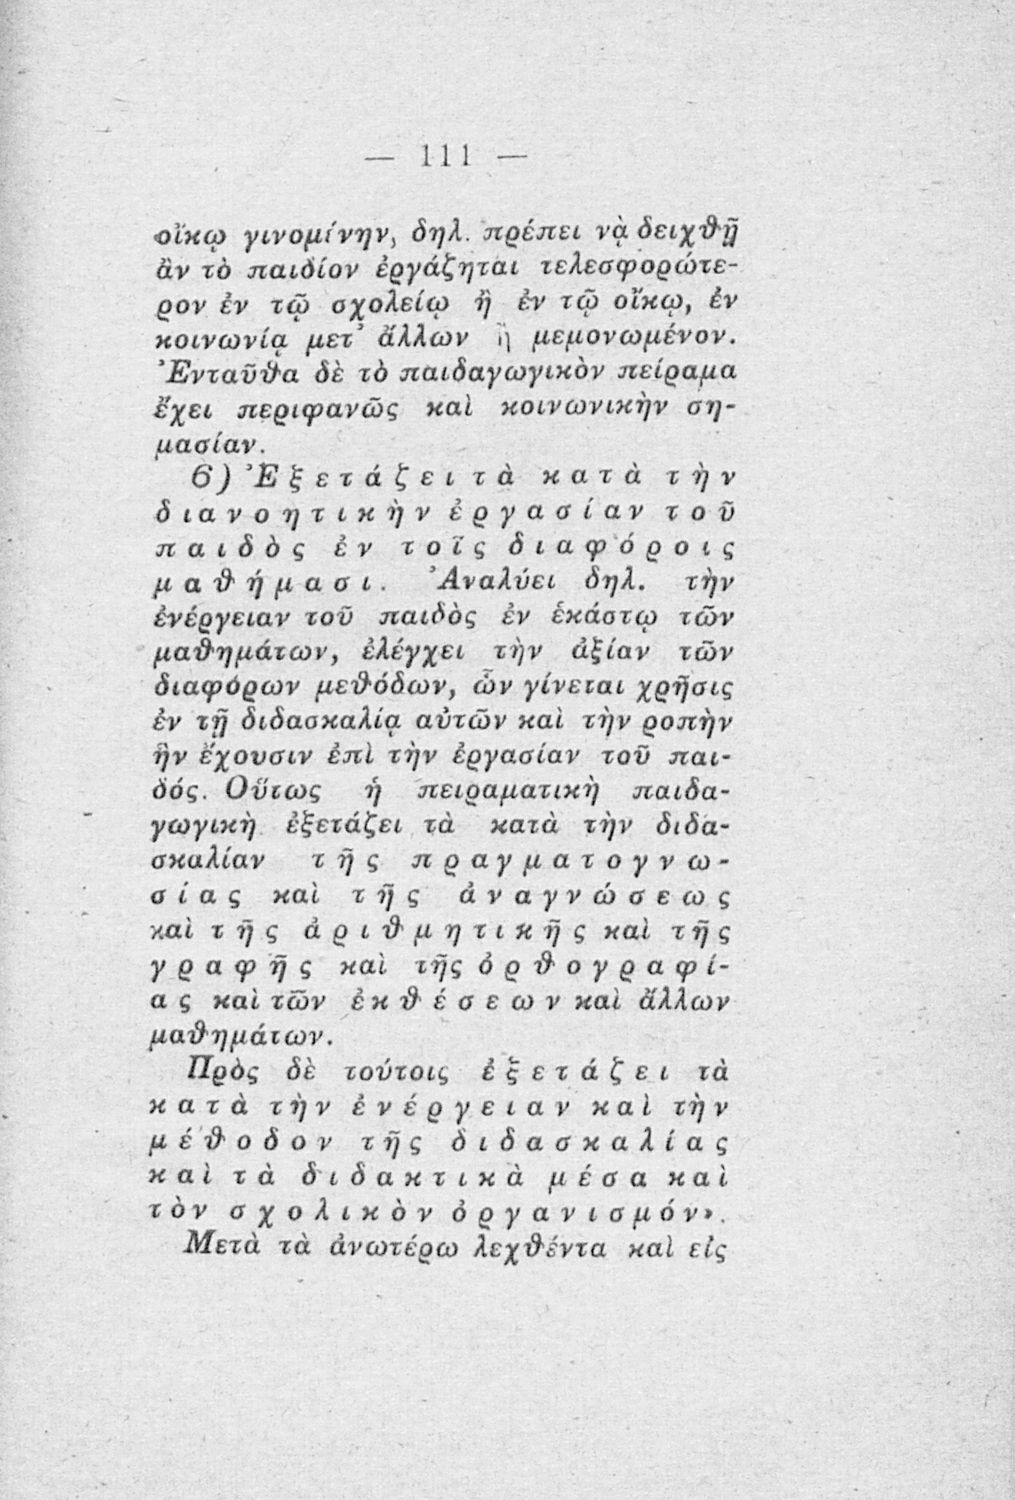 — 111 —
οἴκῳ γινομίνην, δηλ. πρέπει νὰ δειχθῇ
ἂν τὸ παιδίον ἐργάζηται τελεσφορώτε-
ρον ἐν τῷ σχολείῳ ἢ ἐν τῷ οἴκῳ, ἐν
κοινωνίᾳ μετ’ ἄλλων ἢ μεμονωμένον.
Ἐνταῦθα δὲ τὸ παιδαγωγικὸν πείραμα
ἔχει περιφανῶς καὶ κοινωνικὴν ση-
μασίαν.
6) Ἐξετάζει τὰ κατὰ τὴν
διανοητικὴν ἐργασίαν τοῦ
παιδὸς ἐν τοῖς διαφόροις
μαθήμασι. Ἀναλύει δηλ. τὴν
ἐνέργειαν τοῦ παιδὸς ἐν ἑκάστῳ τῶν
μαθημάτων, ἐλέγχει τὴν ἀξίαν τῶν
διαφόρων μεθόδων, ὧν γίνεται χρῆσις
ἐν τῇ διδασκαλίᾳ αὐτῶν καὶ τὴν ροπὴν
ἣν ἔχουσιν ἐπὶ τὴν ἐργασίαν τοῦ παι-
δός. Οὕτως ἡ πειραματικὴ παιδα-
γωγικὴ ἐξετάζει τὰ κατὰ τὴν διδα-
σκαλίαν τῆς πραγματογνω-
σίας καὶ τῆς ἀναγνώσεως
καὶ τῆς ἀριθμητικῆς καὶ τῆς
γραφῆς καὶ τῆς ὀρθογραφί-
ας καὶ τῶν ἐκθέσεων καὶ ἄλλων
μαθημάτων.
Πρὸς δὲ τούτοις ἐξετάζει τὰ
κατὰ τὴν ἐνέργειαν καὶ τὴν
μέθοδον τῆς διδασκαλίας
καὶ τὰ διδακτικὰ μέσα καὶ
τὸν σχολικὸν ὀργανισμόν».
Μετὰ τὰ ἀνωτέρω λεχθέντα καὶ εἰς